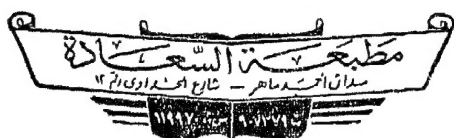 مطبعة السعادة
ميدان أحمد ماهر - شارع الجداوى رقم ١٢